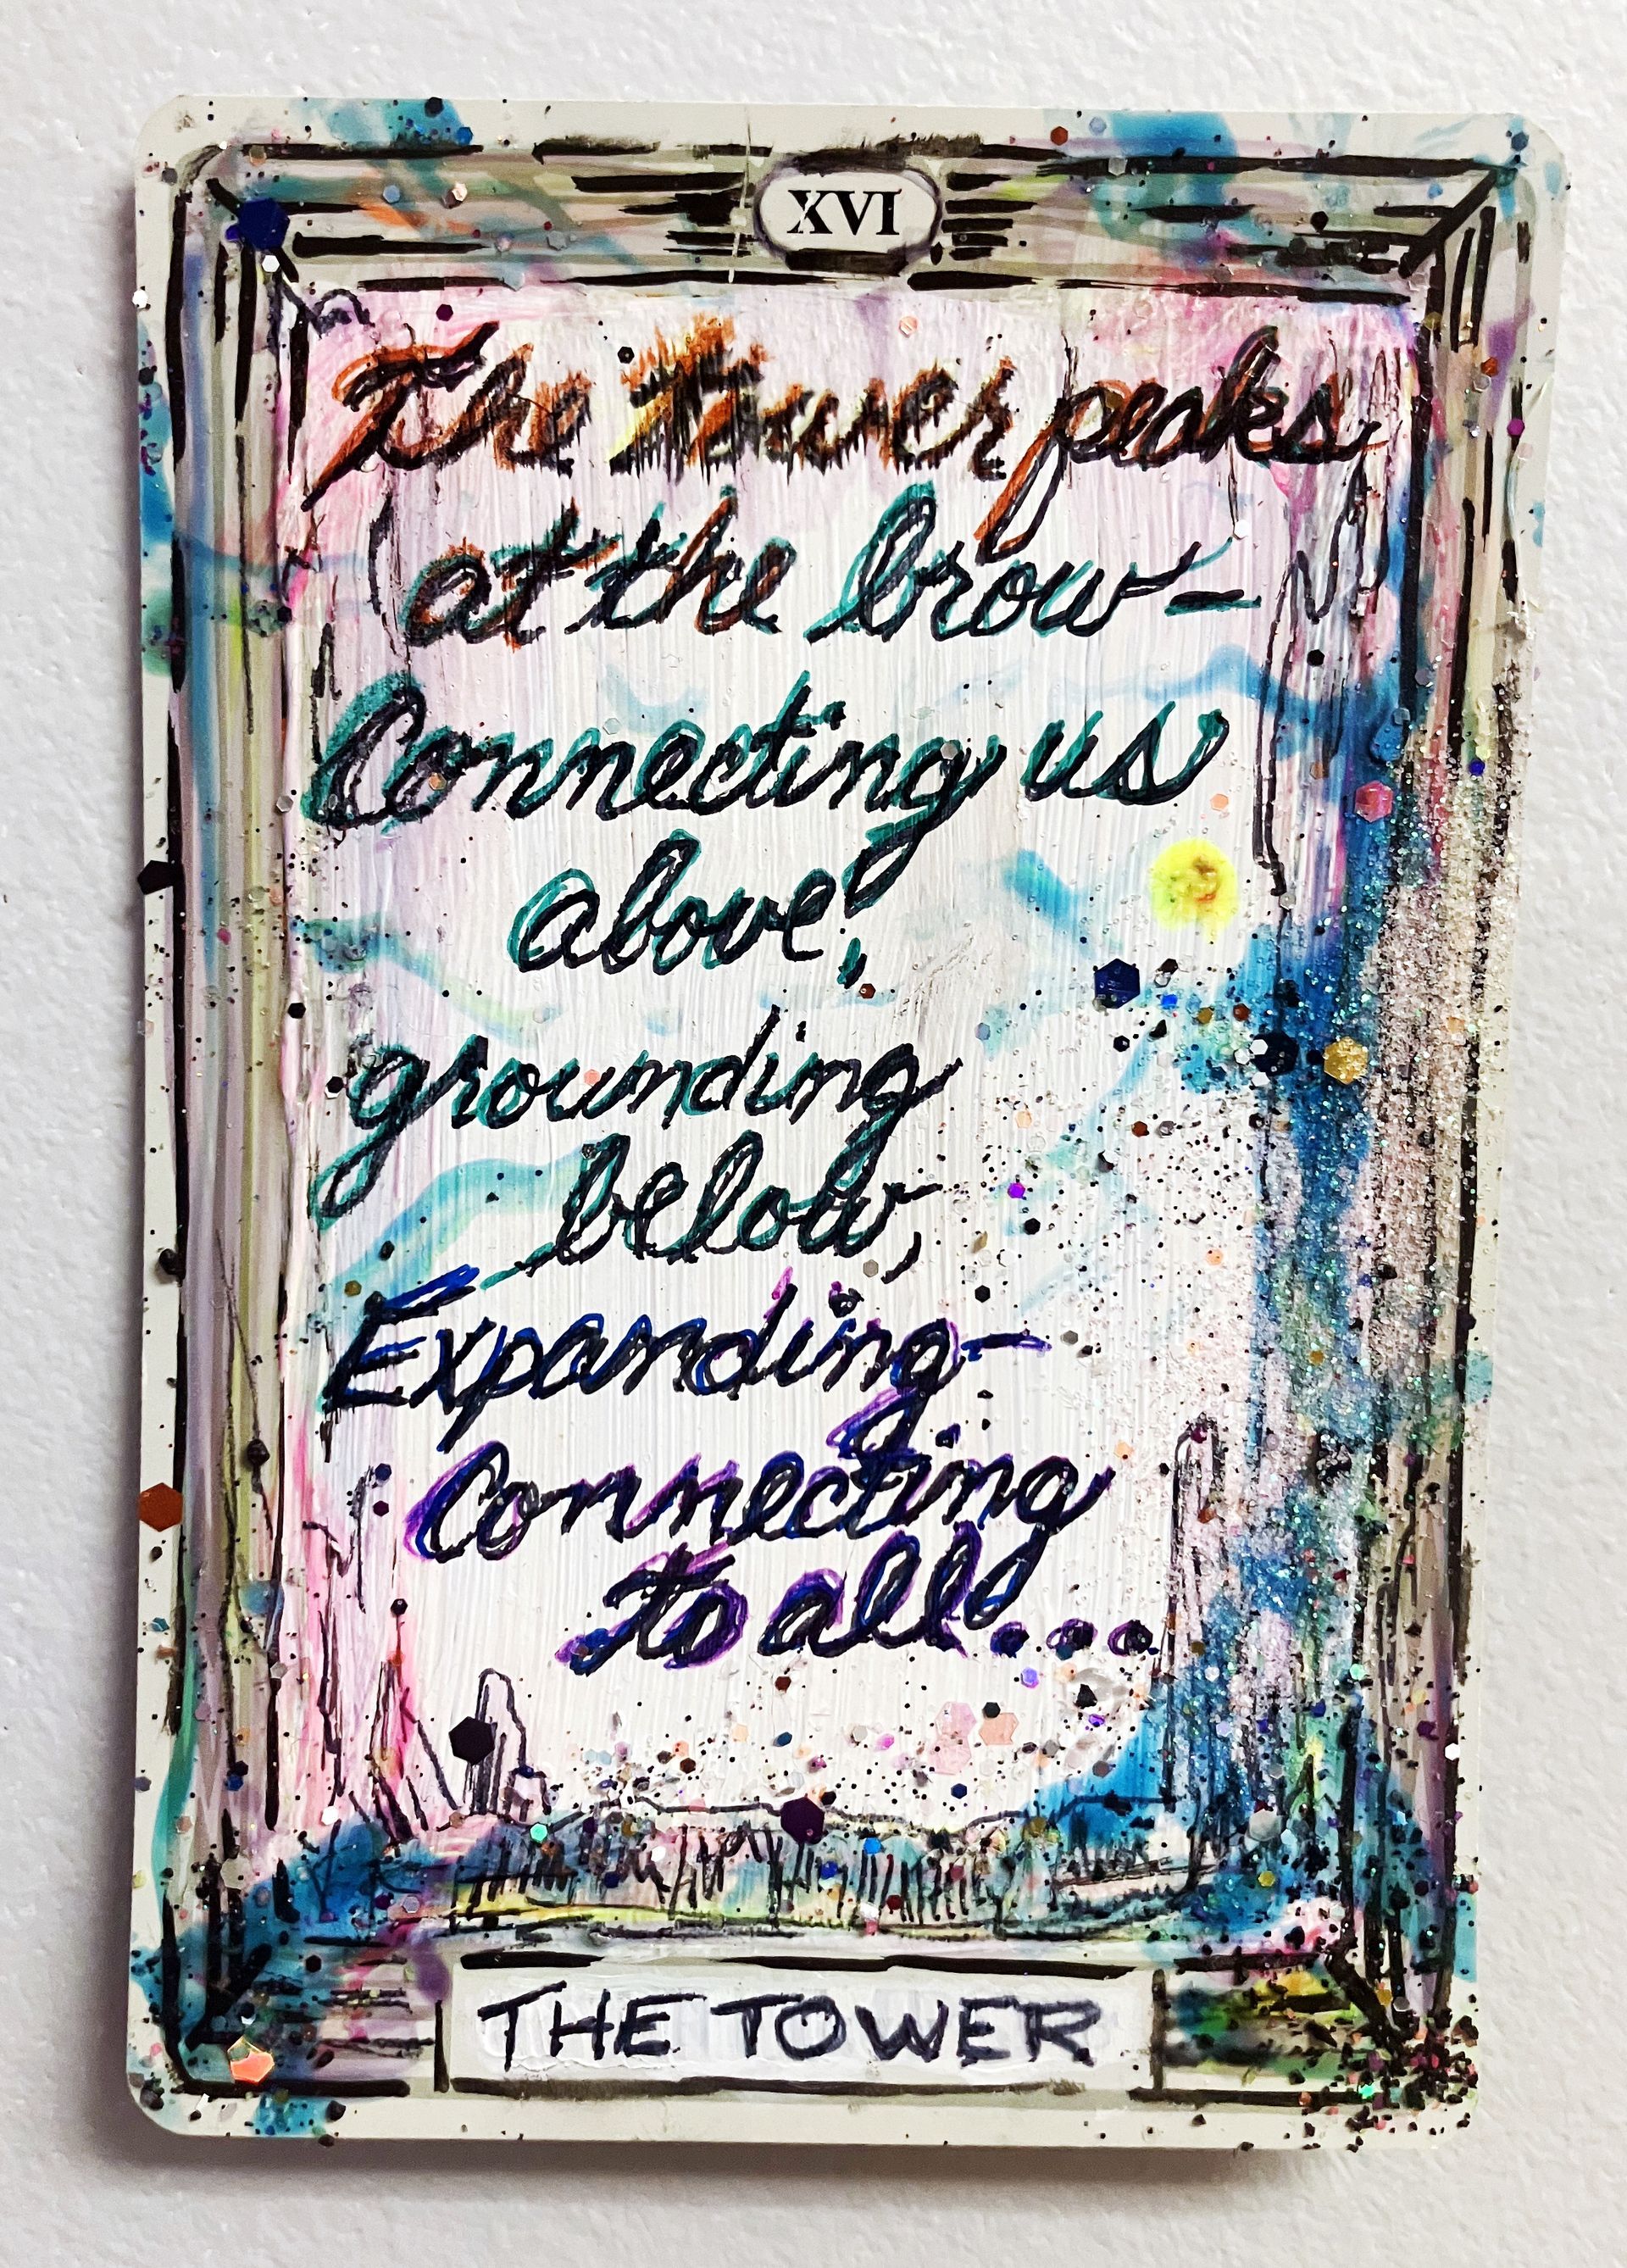 XVI
The tower peaks
at the brow-
Connecting us
above,
grounding
below,
Expanding-
Connecting
to all...
THE TOWER